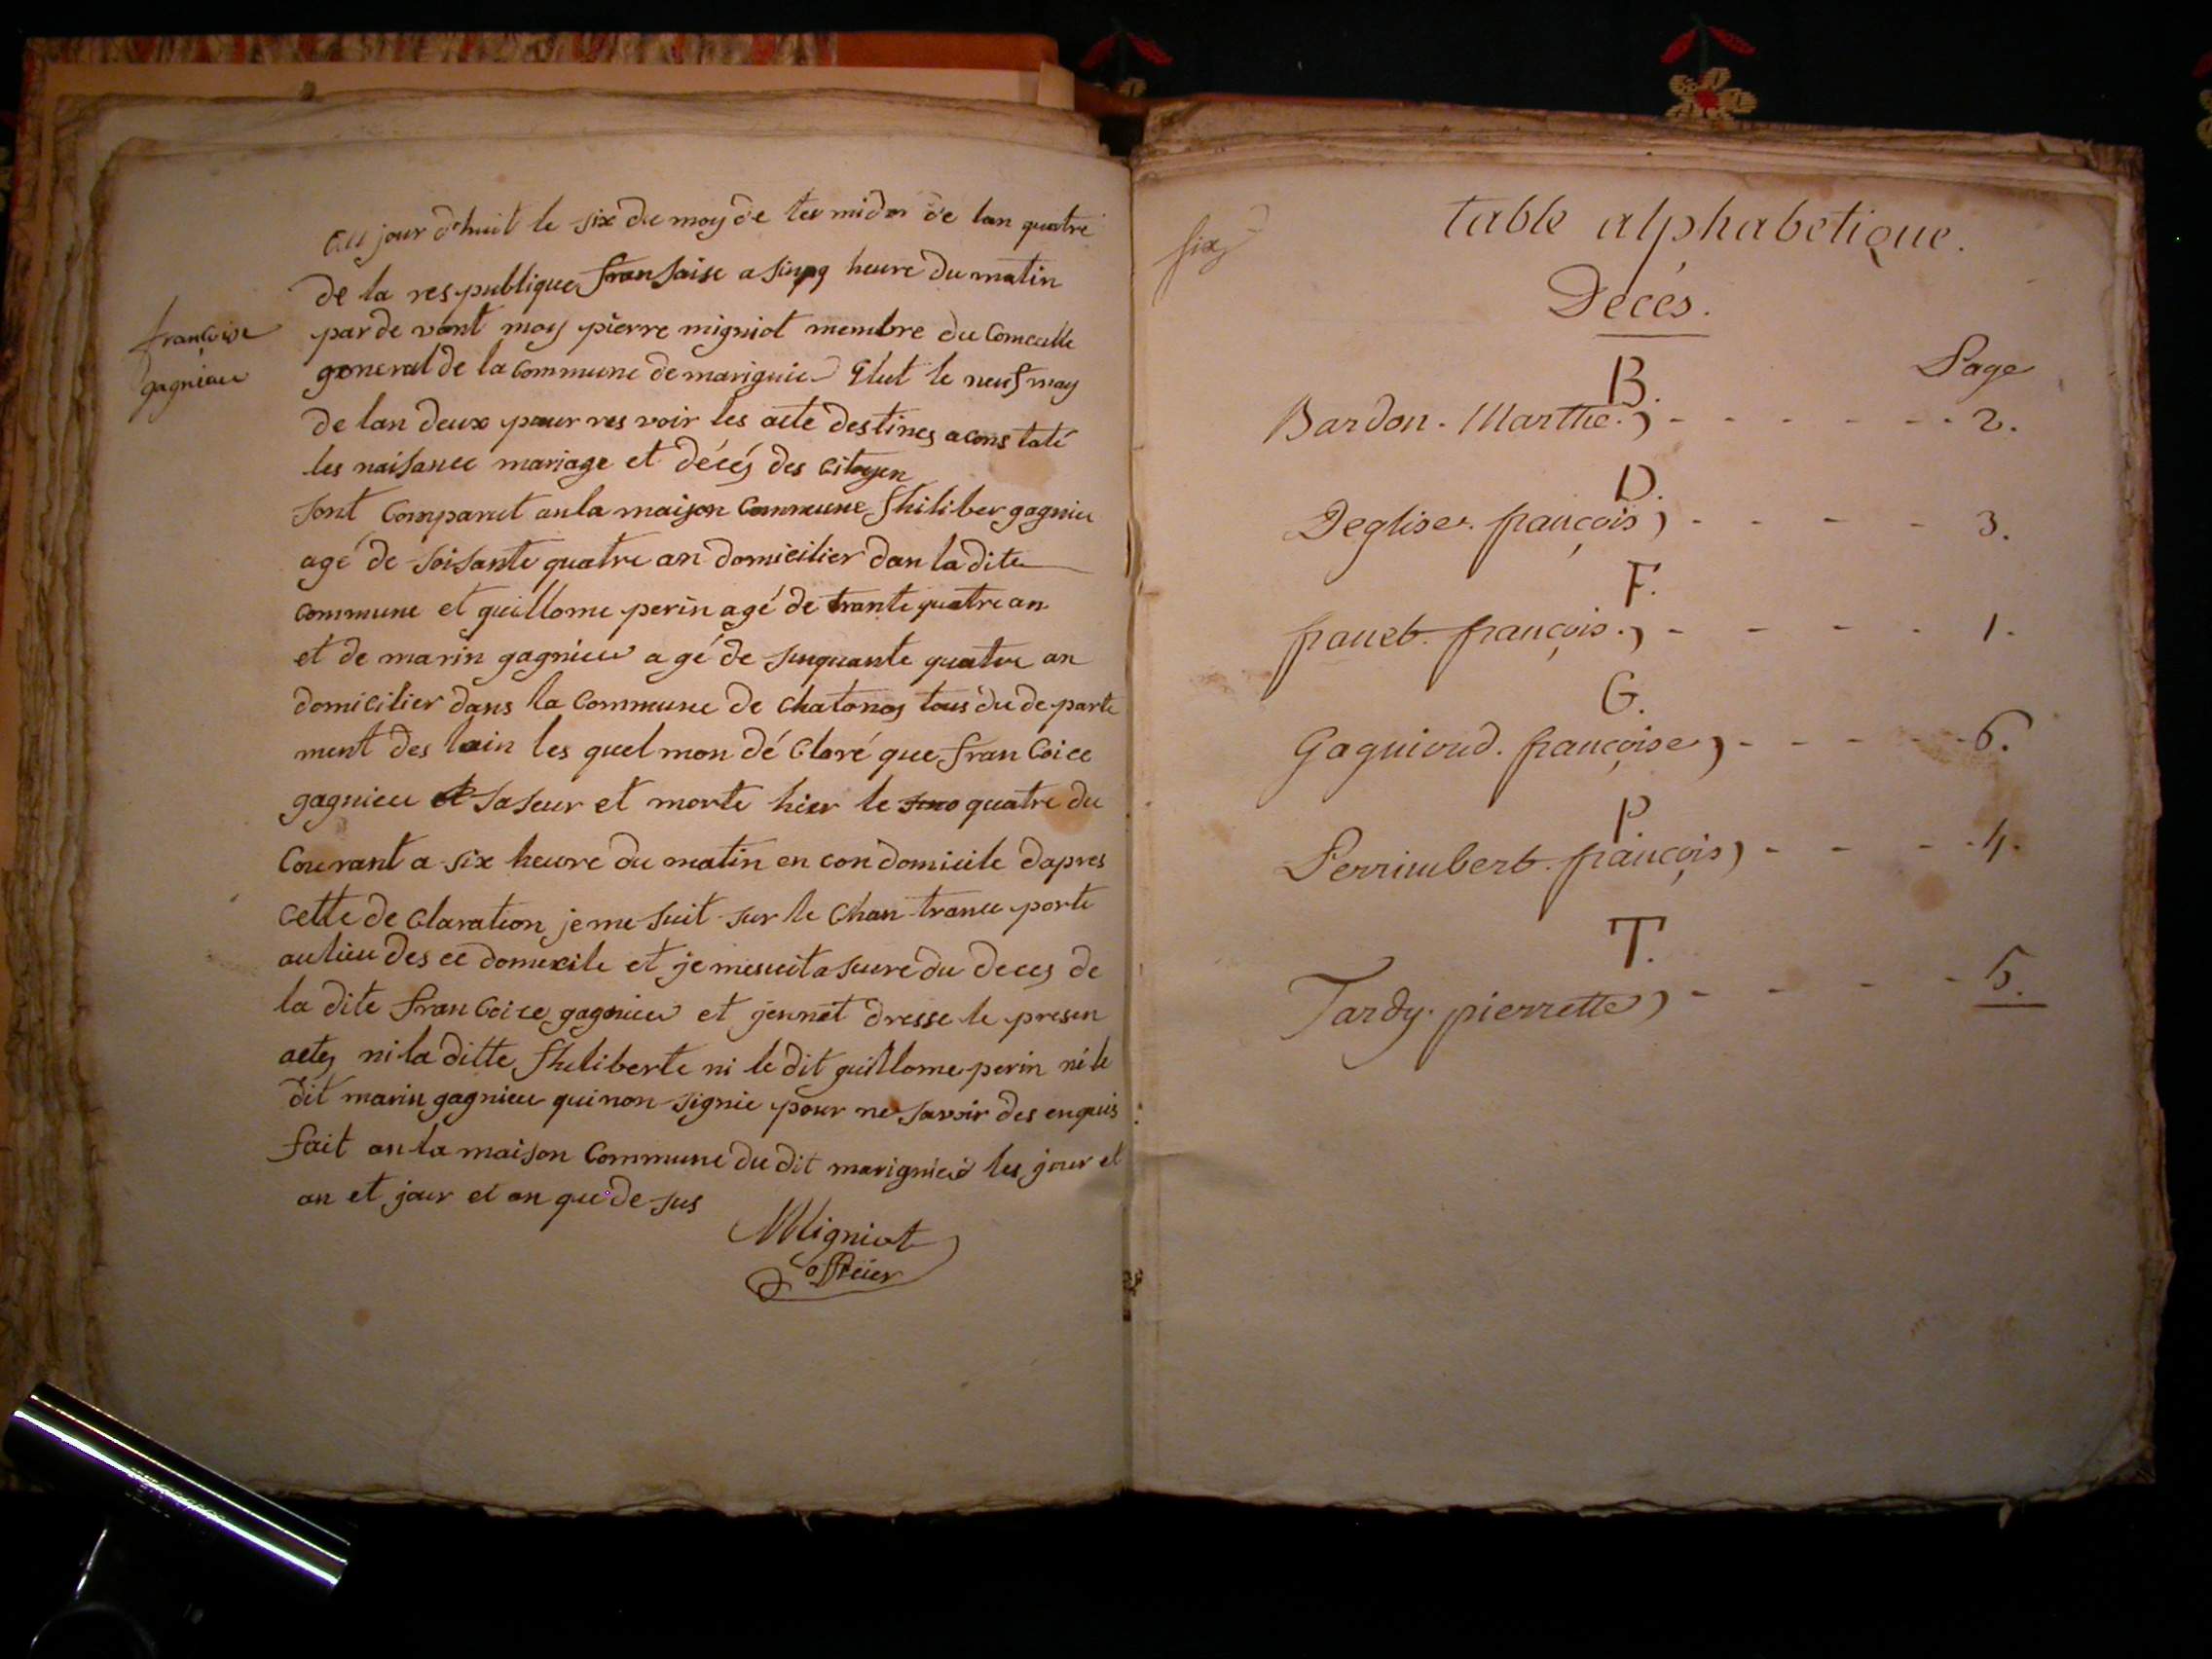 françoise
gagnieu
au jour d'huit le six du moy de ter midor de lan quatre
de la respublique fransaise a sinqq heure du matin
par de vant moy pierre migniot membre du Conceille
general de la Commune de marignieu Elut le neuf may
de lan deux pour res voir les acte destines a cons taté
les naisance mariage et décés des citoyen
sont Comparut an la maison Commune philiber gagnieu
agé de soisante quatre an domicilier dan la dite
commune et guillome perin agé de trante quatre an
et de marin gagnieu a gé de sinquante quatre an
domicilier dans la Commune de Chatonos tous du de parte
ment des lain les quel mon dé Claré que fran Coice
gagnieu et sa seur et morte hier le quatre du
Courant a six heure du matin en con domicile dapres
cette de Claration je me suit sur le Chan trance porte
au lieu des ce domexile et je me suit a seure du deces de
la dite fran Coice gagnieu et jennet dresse le presen
actes ni la ditte philiberte ni le dit guillome perin ni le
dit marin gagnieu qui non signie pour ne savoir des enquis
fait an la maison Commune du dit marignieu les jour et
an et jour et an que de sus
Migniot
officier
six
table alphabetique.
Décés.
B. Page
Bardon. Marthe. 2.
D.
Deglise. françois 3.
F.
francb. françois. 1.
G.
Gagnioud. françoise 6.
P.
Perrimbert. françois 4.
T.
Tardy. pierrette 5.